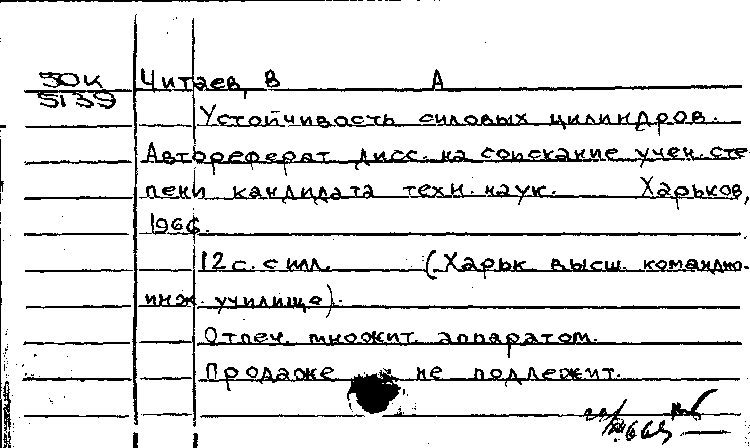 30К Читаев, В А
5139
Устойчивость силовых цилиндров.
Автореферат дисс. на соискание учен. сте
пени кандидата техн. наук. Харьков,
1966.
12 с. с илл. (Харьк высш. командно-
инж. училище).
Отпеч. множит. аппаратом.
Продаже не подлежит.